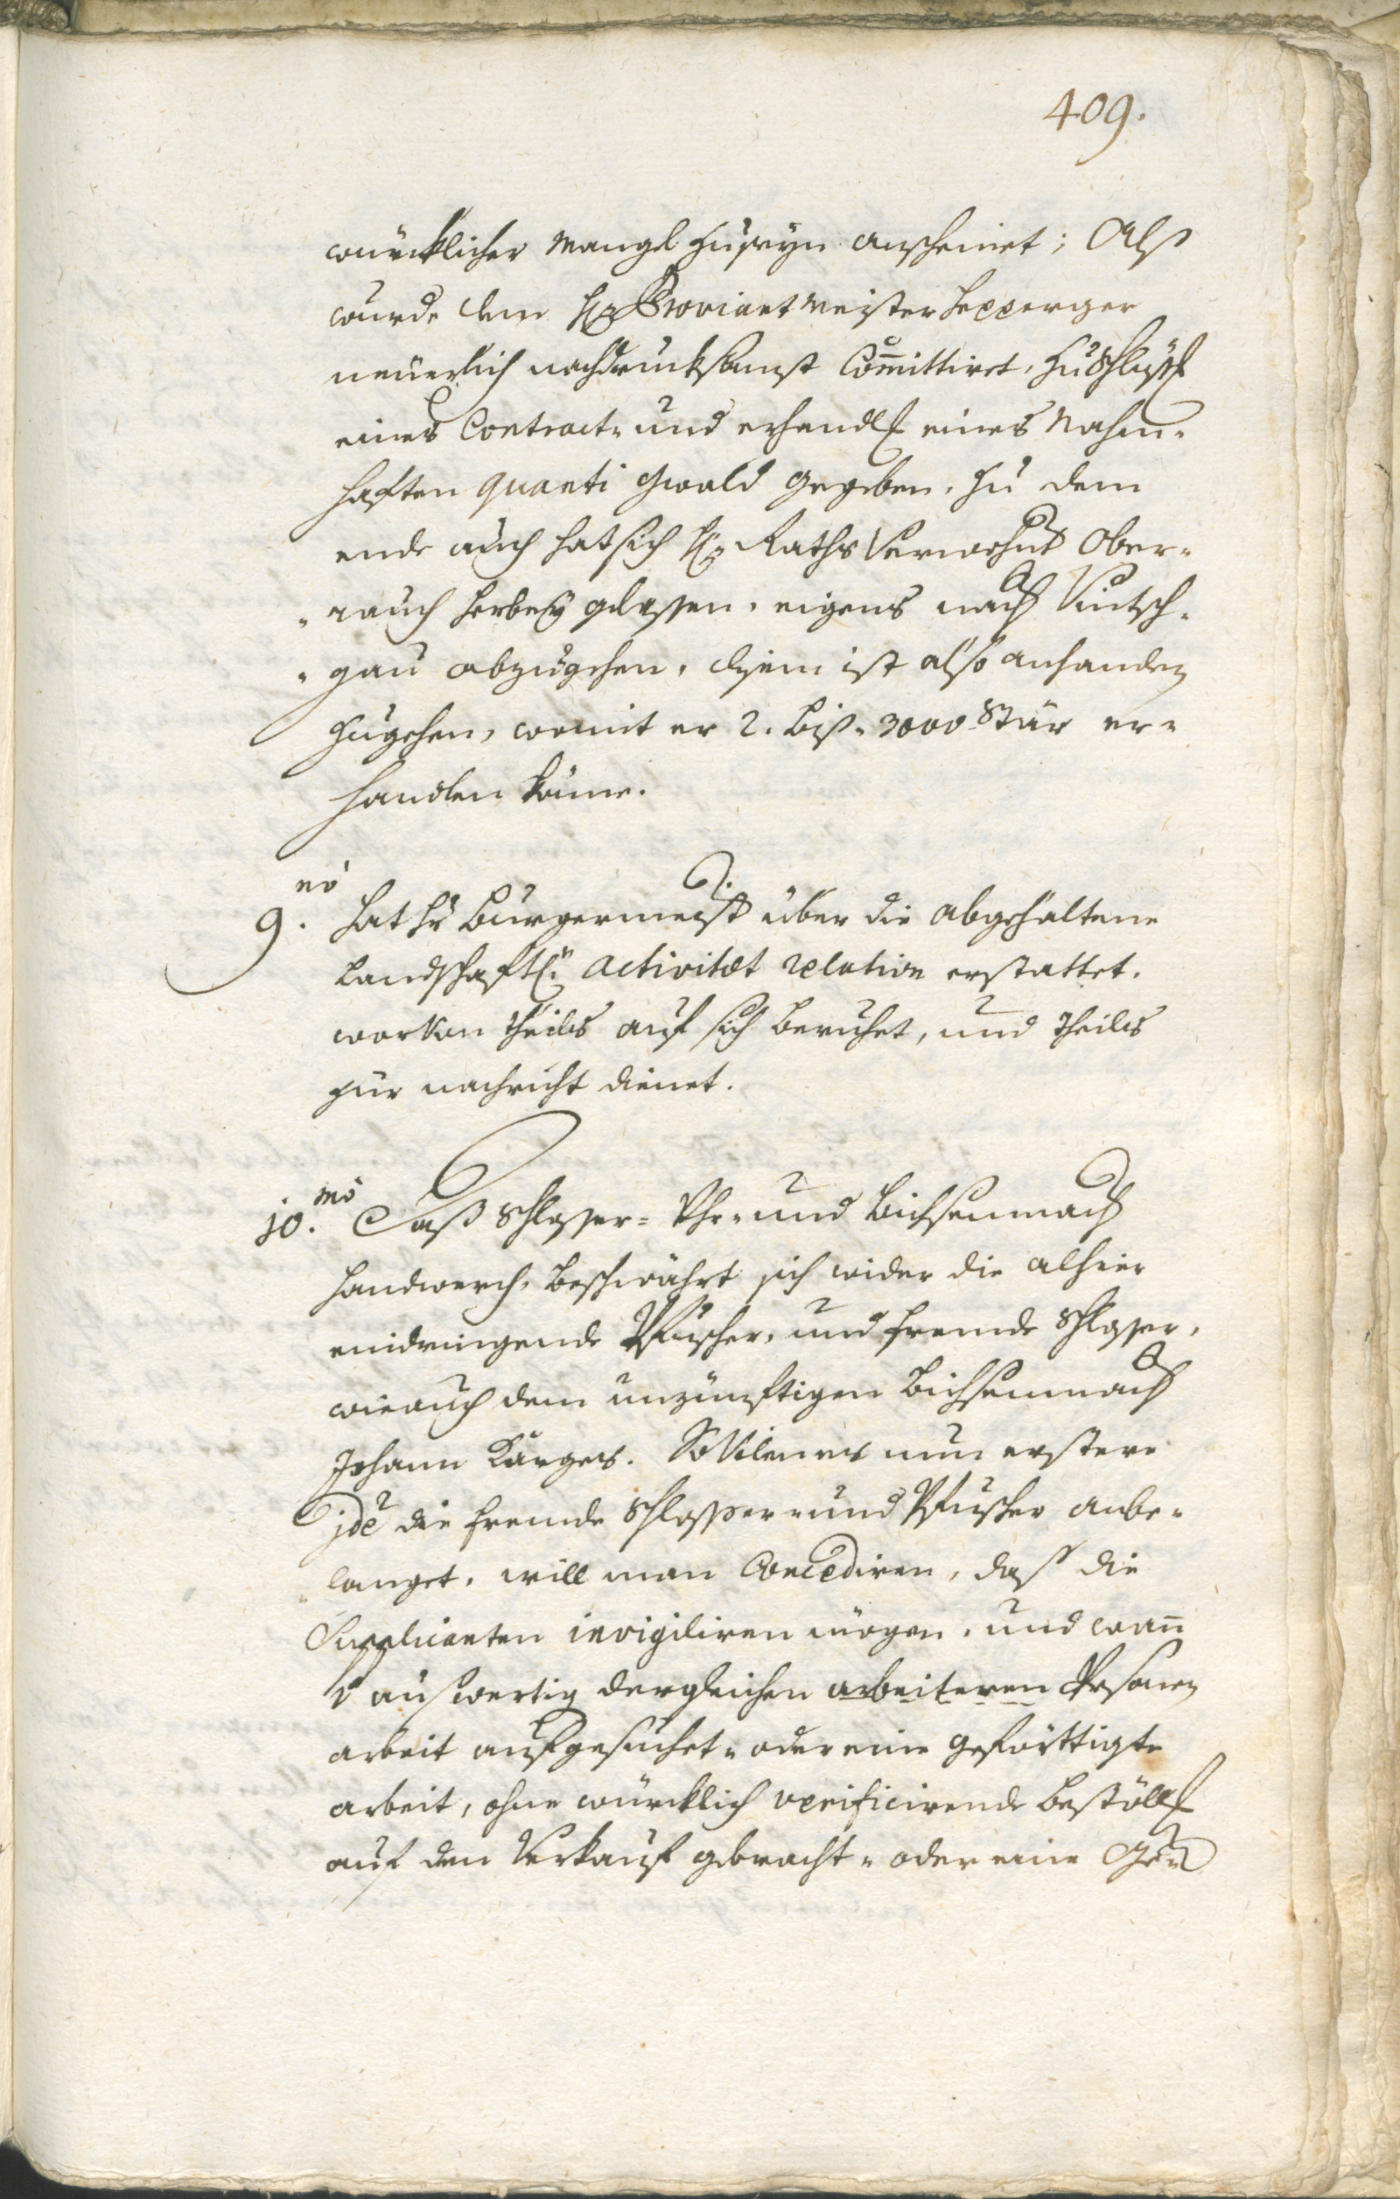 409.
würcklicher Mangl zuseyn anscheinet; Alß
wurde dem H: Proviantmeister Hepperger
neüerlich nachdruksamst Com̄ittiret, zu Schliess
eines Contract- und erhandl eines Nahm-
hafften quanti gwald gegeben, zu dem
ende auch hat sich H: Raths Verwohnt Ober-
-rauch herbey glassen, eigens nach Vintsch-
-gau abzugehen, disem ist also anhanden
zugehen, womit er 2. biß 3000 Stär er-
handlen köne.
9.no hat H: Burgermeist über die abgehaltene
Landschafftl: activitæt relation erstattet.
worvon theils auf sich beruhet, und theils
zur nachricht dienet.
10.mo Daß Schlosser- Uhr- und Bichsenmach
Handwerch, beschwährt sich wider die alhier
eindringende Pfuscher, und fremde Schlosser,
wie auch dem unzünfftigen Bichsenmach
Johann Karges. Sovil nun erstere
jdē die fremde Schlosser- und Pfuscher anbe-
langet, will man Concediren, daß die
Supplicanten invigiliren mögen, und wan̄
auswertig dergleichen arbeiteren Persohnen
arbeit aufgesuchet- oder eine geförttigte
arbeit, ohne würcklich verificirende bestöll
auf den Verkauf gebracht- oder eine